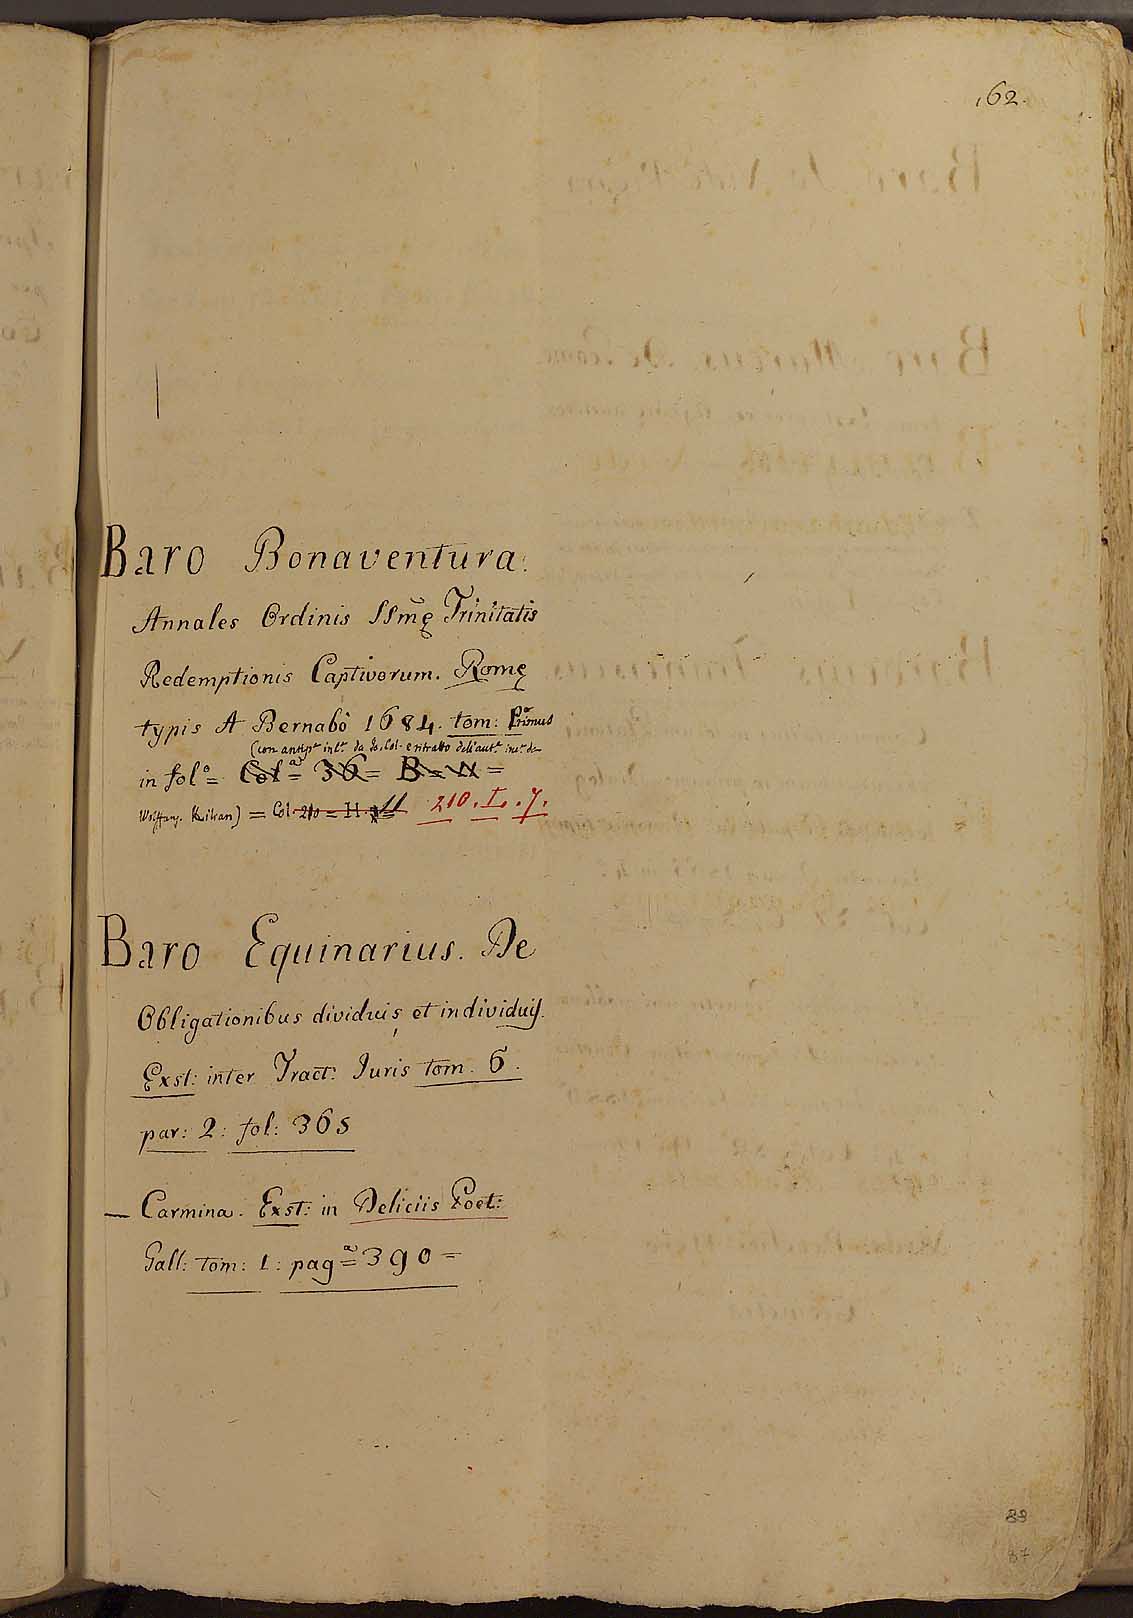 162.
Baro Bonaventura.
Annales Ordinis SSmę Trinitatis
Redemptionis Captivorum. Romę
typis A Bernabò 1684. tom: Primus
(con antipᵃ inᵗᵃ da Jo. Col. e ritratto dell'autᵉ incᵒ da
in folᵒ = Colᵃ = 36 = B = 11 =
Wolffang. Kilian) = Col. 210 = H. 11 210. I. 7.
Baro Equinarius. De
Obligationibus dividuis, et individuis.
Exst: inter Tract: Juris tom. 6.
par: 2: fol: 365
— Carmina. Exst: in Deliciis Poet:
Gall: tom: 1: pagᵃ = 390 =
88
87